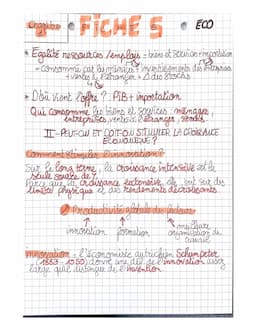 Chapitre 1 FICHE 5 ECO
* Egalité ressources / emplois = biens et services + importation
= consommé par les ménages + investissements des entreprises
+ ventes à l'étranger + Δ des stocks
* D'où vient l'offre ? PIB + importation
Qui consomme les biens et services : ménages,
entreprises, ventes à l'étranger, stocks
II - PEUT-ON ET DOIT-ON STIMULER LA CROISSANCE
ÉCONOMIQUE ?
Comment stimuler l'innovation ?
Sur le long terme, la croissance intensive est la
seule source de
Parce que la croissance extensive, elle, bute sur des
limites physiques et des rendements décroissants.
Productivité globale des facteurs
innovation formation meilleure
organisation du
travail
Innovation = l'économiste autrichien Schumpeter
(1883 - 1950) donne une def de l'innovation assez
large qu'il distingue de l'invention.